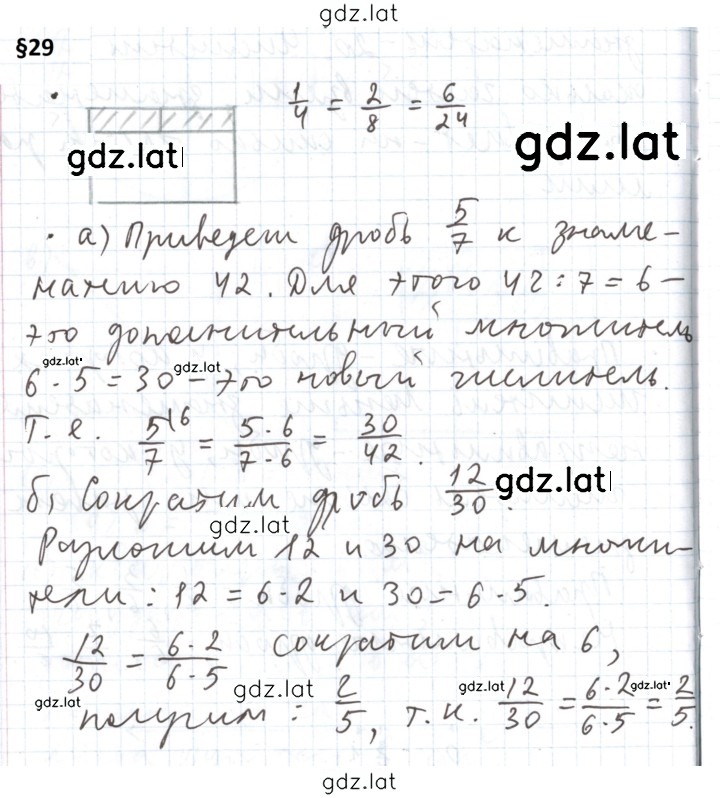 gdz.lat
§29
1/4 = 2/8 = 6/24
gdz.lat
gdz.lat
· а) Приведем дробь 5/7 к знаме-
нателю 42. Для этого 42 : 7 = 6 –
это дополнительный множитель
gdz.lat gdz.lat
6 · 5 = 30 – это новый числитель.
Т. е. 5/7 \6 = 5 · 6 / 7 · 6 = 30/42.
б) Сократим дробь 12/30. gdz.lat
gdz.lat
Разложим 12 и 30 на множи-
тели : 12 = 6 · 2 и 30 = 6 · 5.
12/30 = 6 · 2 / 6 · 5 сократим на 6,
gdz.lat gdz.lat gdz.lat gdz.lat
получим : 2/5, т. к. 12/30 = 6 · 2 / 6 · 5 = 2/5.
gdz.lat